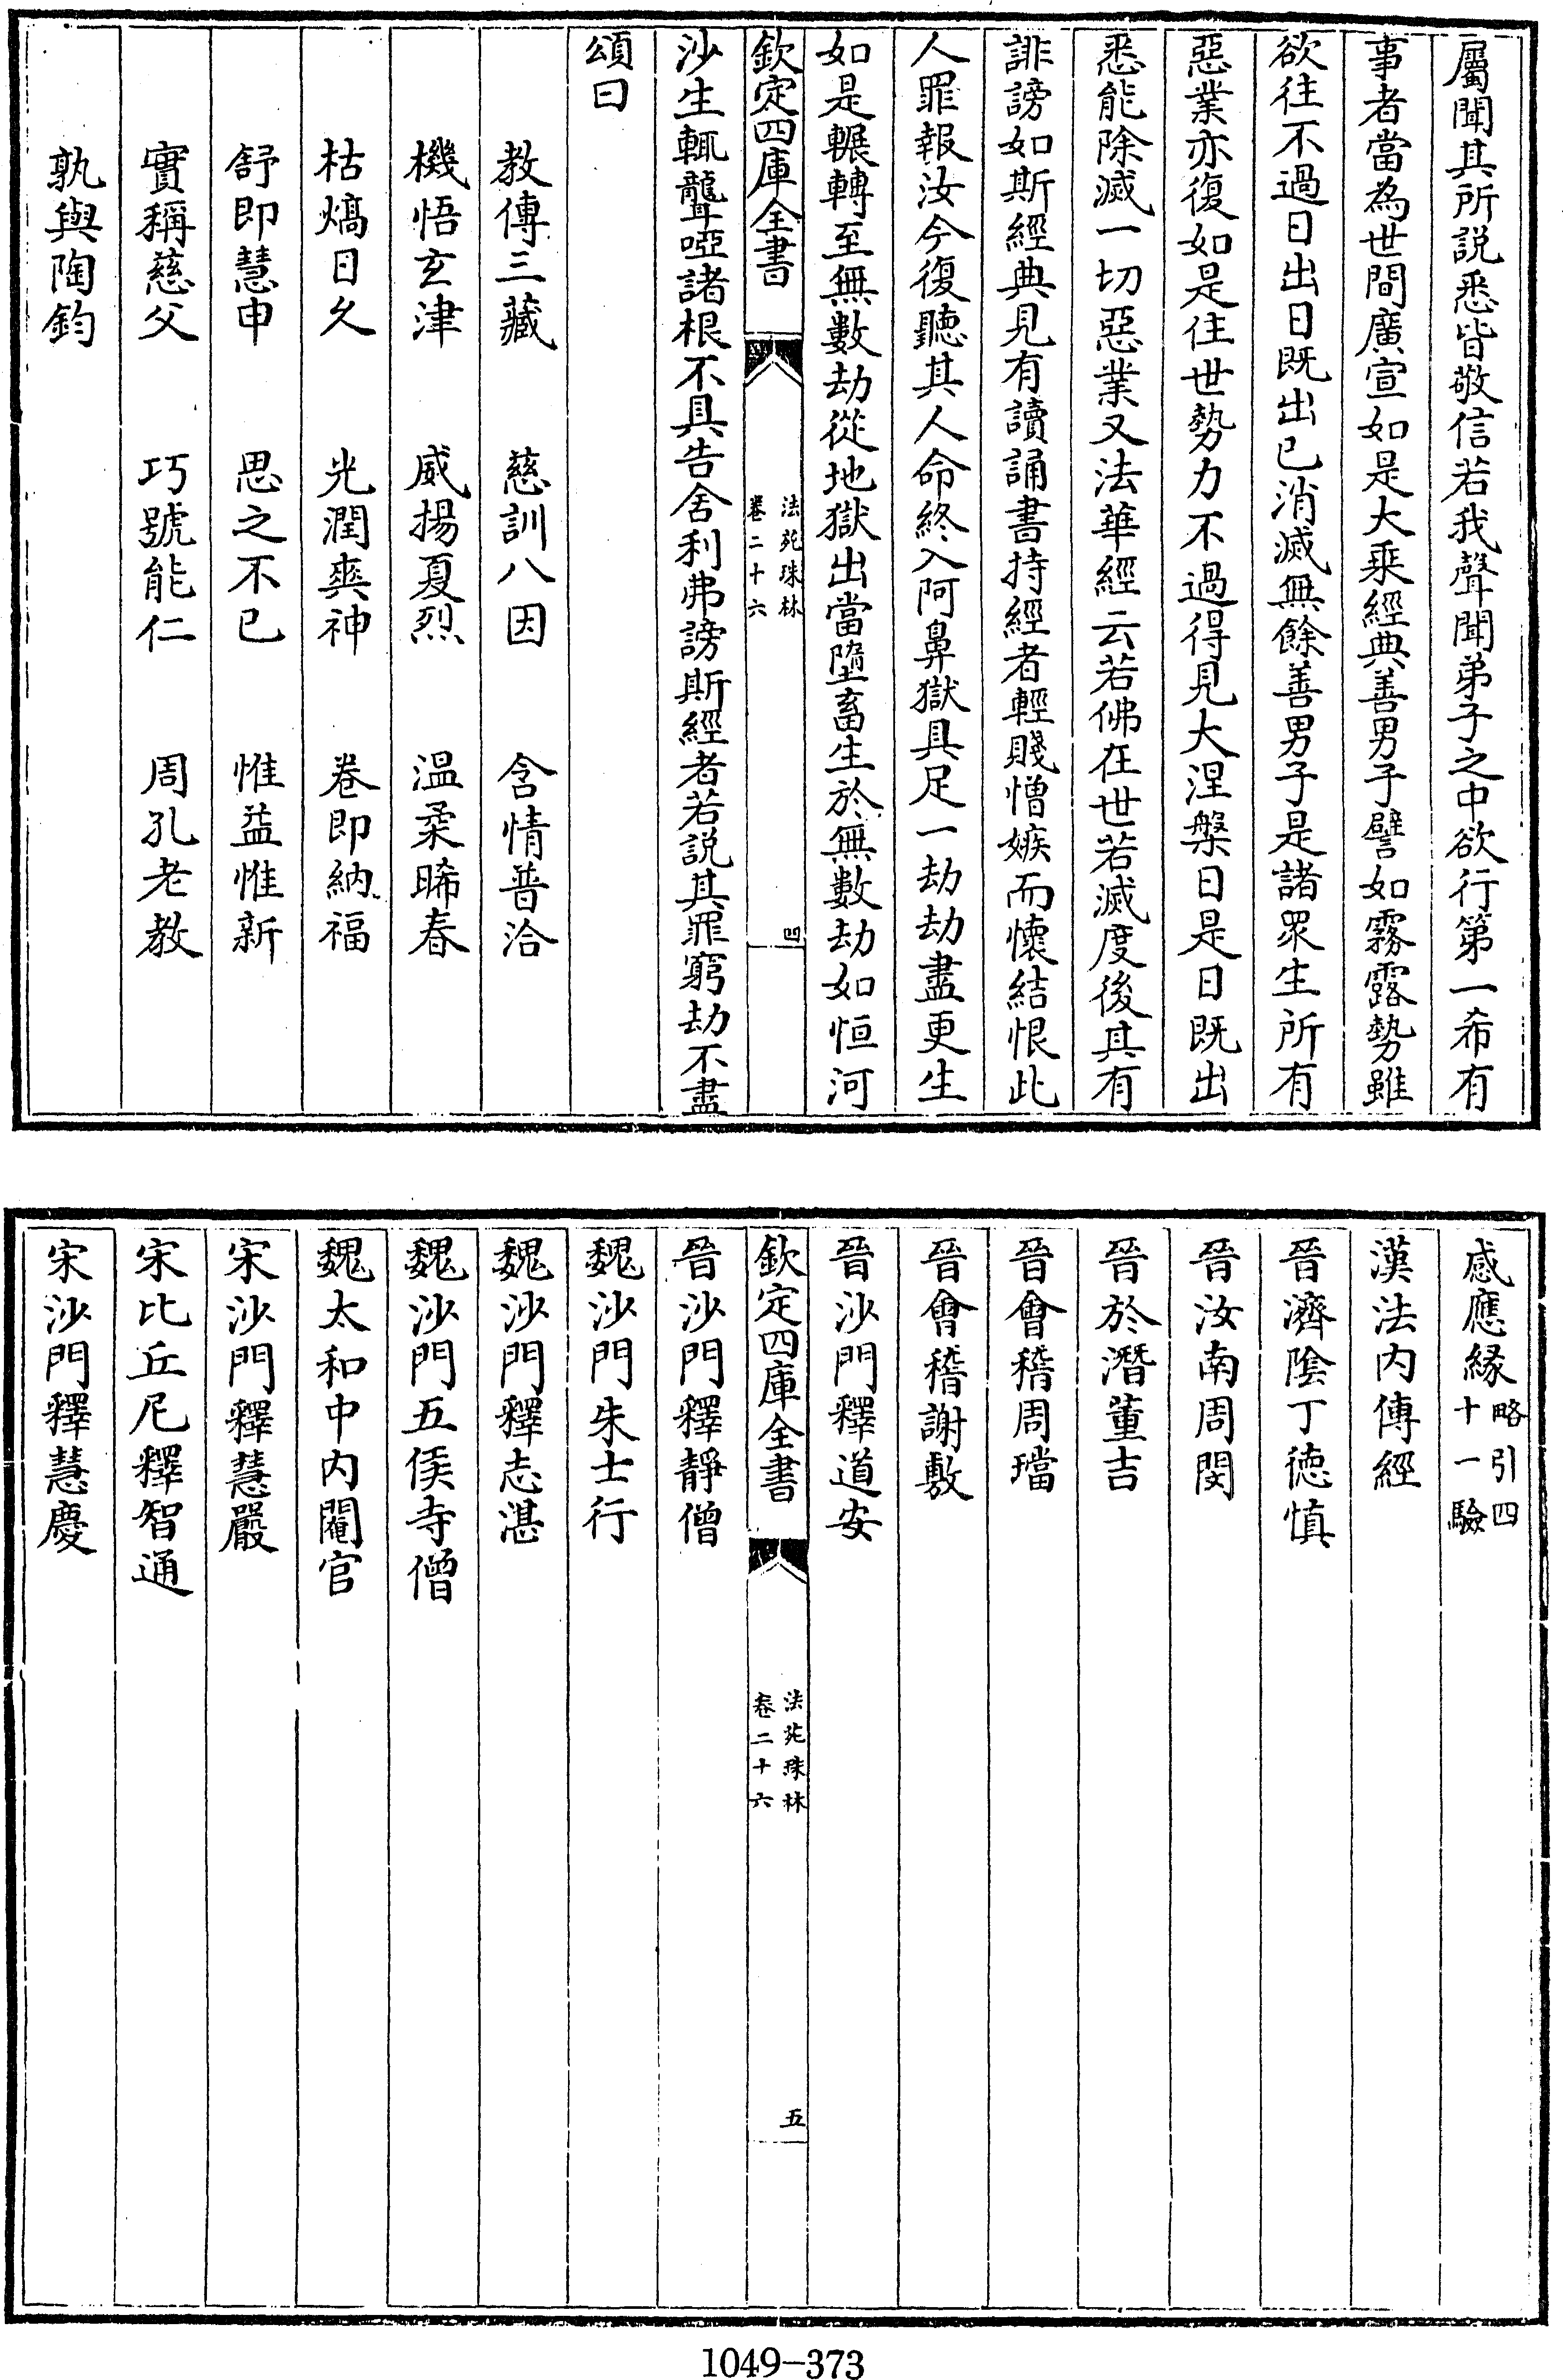 屬聞其所説悉皆敬信若我聲聞弟子之中欲行第一希有
事者當為世間廣宣如是大乘經典善男子譬如霧露勢雖
欲往不過日出日既出已消滅無餘善男子是諸眾生所有
惡業亦復如是住世勢力不過得見大涅槃日是日既出
悉能除滅一切惡業又法華經云若佛在世若滅度後其有
誹謗如斯經典見有讀誦書持經者輕賤憎嫉而懷結恨此
人罪報汝今復聽其人命終入阿鼻獄具足一劫劫盡更生
如是輾轉至無數劫從地獄出當墮畜生於無數劫如恒河
欽定四庫全書
法苑珠林
卷二十六
四
沙生輒聾啞諸根不具告舍利弗謗斯經者若説其罪窮劫不盡
頌曰
教傳三藏 慈訓八因 含情普洽
機悟玄津 威揚夏烈 温柔晞春
枯熇日久 光潤爽神 卷即納福
舒即慧申 思之不已 惟益惟新
實稱慈父 巧號能仁 周孔老教
孰與陶鈞
感應緣略引四十一驗
漢法内傳經
晉濟隂丁德慎
晉汝南周閔
晉於潛董吉
晉會稽周璫
晉會稽謝敷
晉沙門釋道安
欽定四庫全書
法苑珠林
卷二十六
五
晉沙門釋靜僧
魏沙門朱士行
魏沙門釋志湛
魏沙門五侯寺僧
魏太和中内閹官
宋沙門釋慧嚴
宋比丘尼釋智通
宋沙門釋慧慶
1049-373